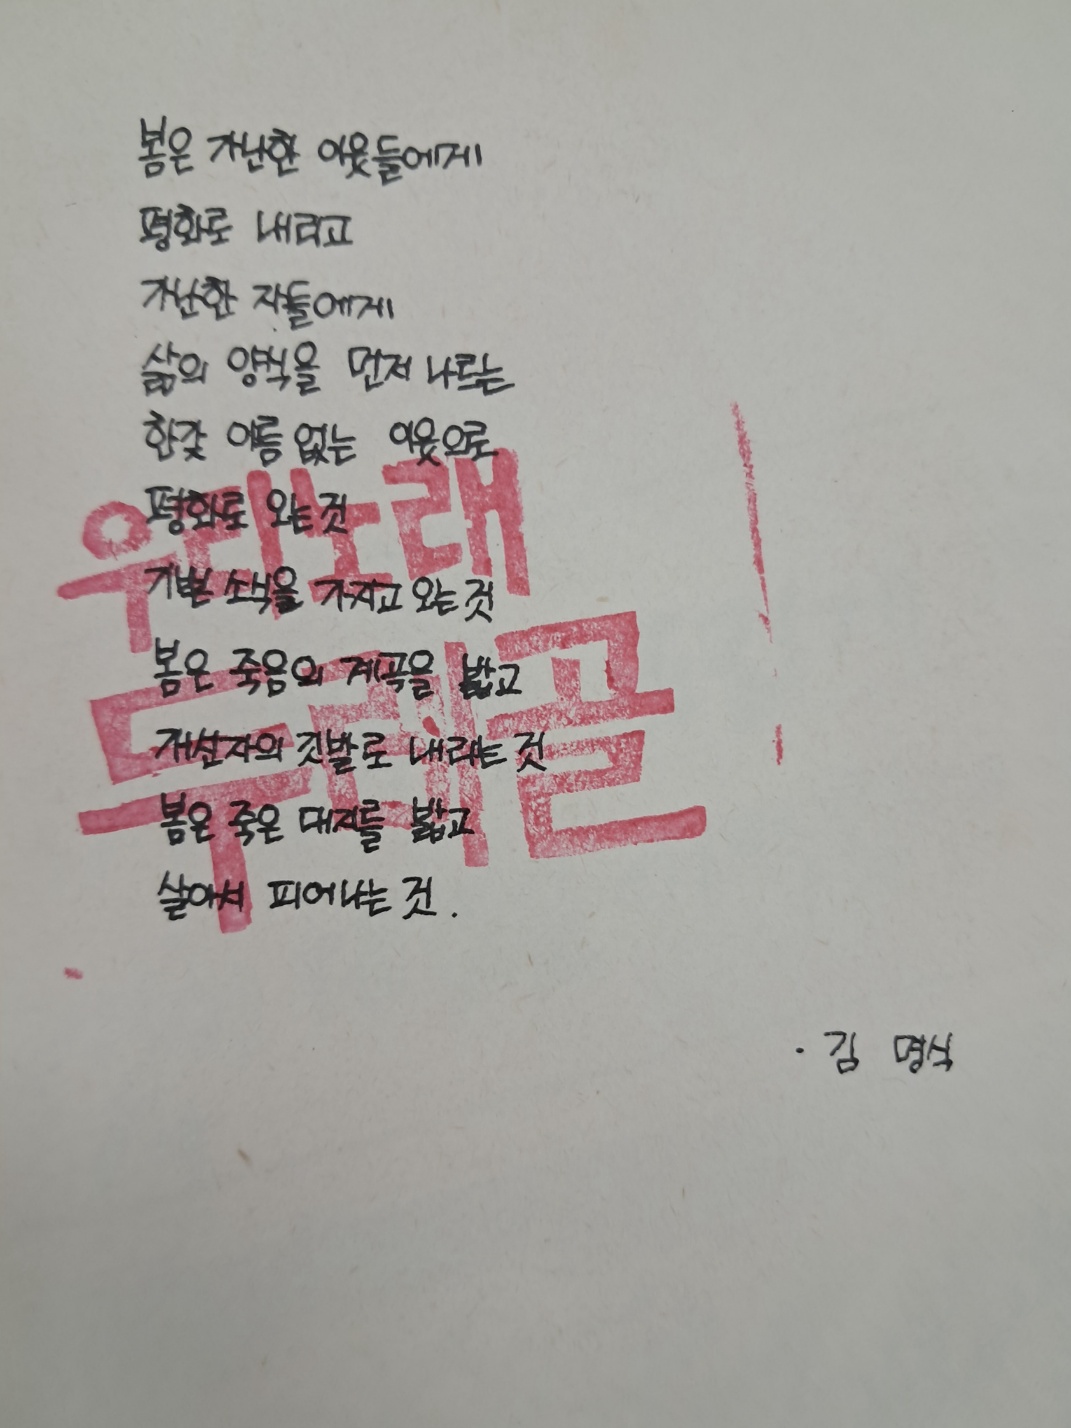 봄은 가난한 이웃들에게
평화로 내리고
가난한 자들에게
삶의 양식을 먼저 나르는
한갓 이름 없는 이웃으로
평화로 오는 것
기쁜 소식을 가지고 오는 것
봄은 죽음의 계곡을 밟고
개선자의 깃발로 내리는 것
봄은 죽은 대지를 밟고
살아서 피어나는 것.
우리노래
두레골
· 김 명식